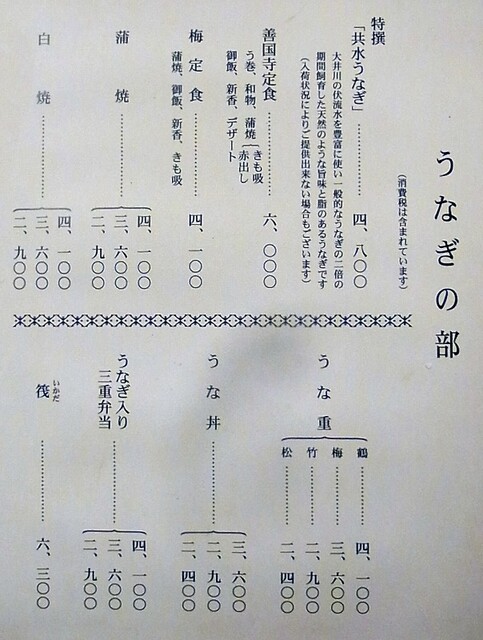 うなぎの部
(消費税は含まれています)
特撰
「共水うなぎ」………… 四、八〇〇
大井川の伏流水を豊富に使い一般的なうなぎの二倍の
期間飼育した天然のような旨味と脂のあるうなぎです
(入荷状況によりご提供出来ない場合もございます)
善国寺定食………… 六、〇〇〇
う巻、和物、蒲焼
きも吸
赤出し
御飯、新香、デザート
梅定食………… 四、一〇〇
蒲焼、御飯、新香、きも吸
蒲焼…………
四、一〇〇
三、六〇〇
二、九〇〇
白焼…………
四、一〇〇
三、六〇〇
二、九〇〇
うな重
鶴………… 四、一〇〇
梅………… 三、六〇〇
竹………… 二、九〇〇
松………… 二、四〇〇
うな丼…………
三、六〇〇
二、九〇〇
二、四〇〇
うなぎ入り
三重弁当…………
四、一〇〇
三、六〇〇
二、九〇〇
いかだ
筏………… 六、三〇〇